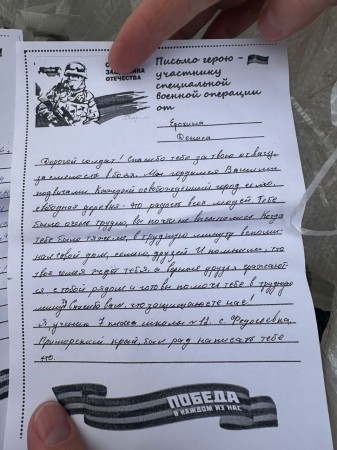 ЗАЩИТНИКА
ОТЕЧЕСТВА
Письмо герою -
участнику
специальной
военной операции
от
Ерохина
Дениса
Дорогой солдат! Спасибо тебе за твою отвагу,
за смелость в боях. Мы гордимся Вашими
подвигами. Каждый освобождённый город, село,
свободная деревня - это радость всех людей. Тебе
было очень трудно, но ты не
тебе было тяжело, в трудную минуту вспоми
нал свой дом, семью, друзей. И помни что
твоя семья ждёт тебя, а верные друзья сражают
ся с тобой рядом и готовы помочь тебе в трудную
минуту. Спасибо вам, что защищаете нас!
Я ученик 7 класса школы с. Федосеевка,
Приморский край, был рад написать тебе
ПОБЕДА
В КАЖДОМ ИЗ НАС